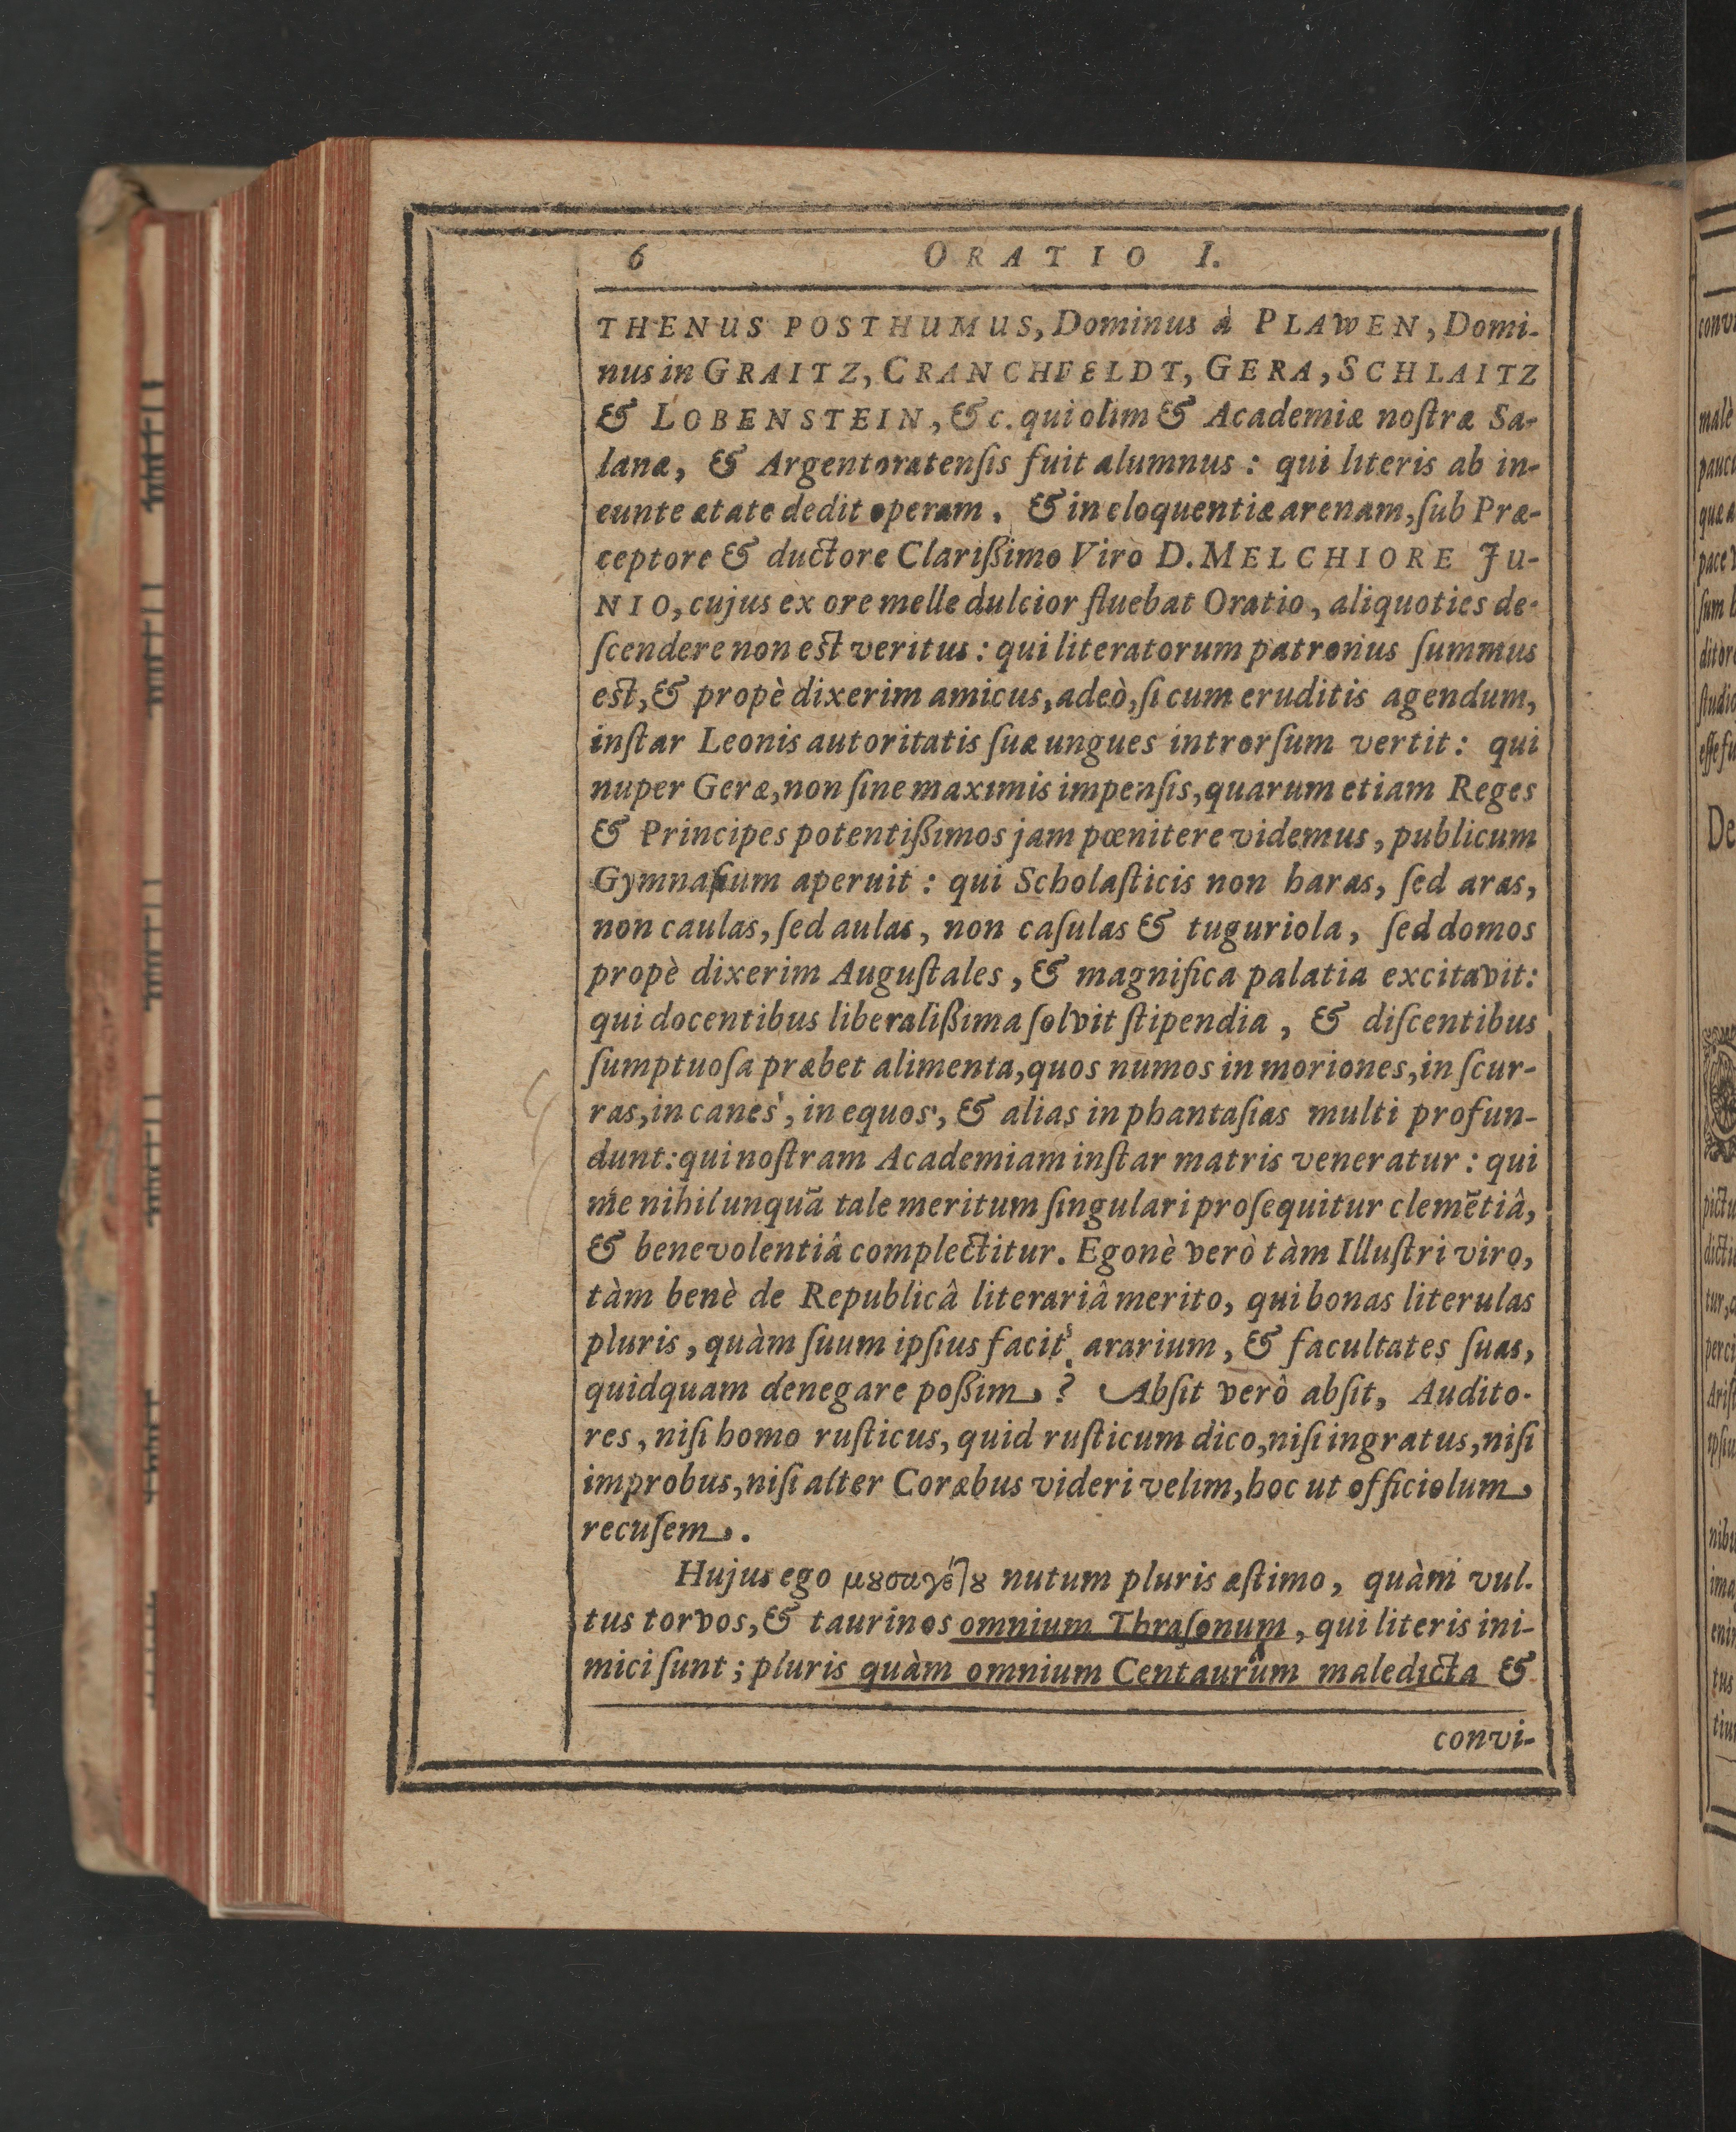 6 ORATIO I.
THENUS POSTHUMUS, Dominus à PLAWEN, Domi-
nus in GRAITZ, CRANCHFELDT, GERA, SCHLAITZ
& LOBENSTEIN, &c. qui olim & Academiæ noſtræ Sa-
lanæ, & Argentoratenſis fuit alumnus : qui literis ab in-
eunte ætate dedit operam. & in eloquentiæ arenam, ſub Præ-
ceptore & ductore Clarißimo Viro D. MELCHIORE JU-
NIO, cujus ex ore melle dulcior fluebat Oratio, aliquoties de-
ſcendere non eſt veritus : qui literatorum patronus ſummus
eſt, & propè dixerim amicus, adeò, ſi cum eruditis agendum,
inſtar Leonis autoritatis ſuæ ungues introrſum vertit : qui
nuper Geræ, non ſine maximis impenſis, quarum etiam Reges
& Principes potentißimos jam pœnitere videmus, publicum
Gymnaſium aperuit : qui Scholaſticis non haras, ſed aras,
non caulas, ſed aulas, non caſulas & tuguriola, ſed domos
propè dixerim Auguſtales, & magnifica palatia excitavit:
qui docentibus liberalißima ſolvit ſtipendia, & diſcentibus
ſumptuoſa præbet alimenta, quos numos in moriones, in ſcur-
ras, in canes, in equos, & alias in phantaſias multi profun-
dunt: qui noſtram Academiam inſtar matris veneratur : qui
me nihil unquã tale meritum ſingulari proſequitur clemẽtiâ,
& benevolentiâ complectitur. Egonè verò tàm Illuſtri viro,
tàm benè de Republicâ literariâ merito, qui bonas literulas
pluris, quàm ſuum ipſius facit ærarium, & facultates ſuas,
quidquam denegare poßim ? Abſit verò abſit, Audito-
res, niſi homo ruſticus, quid ruſticum dico, niſi ingratus, niſi
improbus, niſi alter Corœbus videri velim, hoc ut officiolum
recuſem.
Hujus ego μουσαγέτου nutum pluris æſtimo, quàm vul-
tus torvos, & taurinos omnium Thraſonum, qui literis ini-
mici ſunt ; pluris quàm omnium Centaurûm maledicta &
convi-